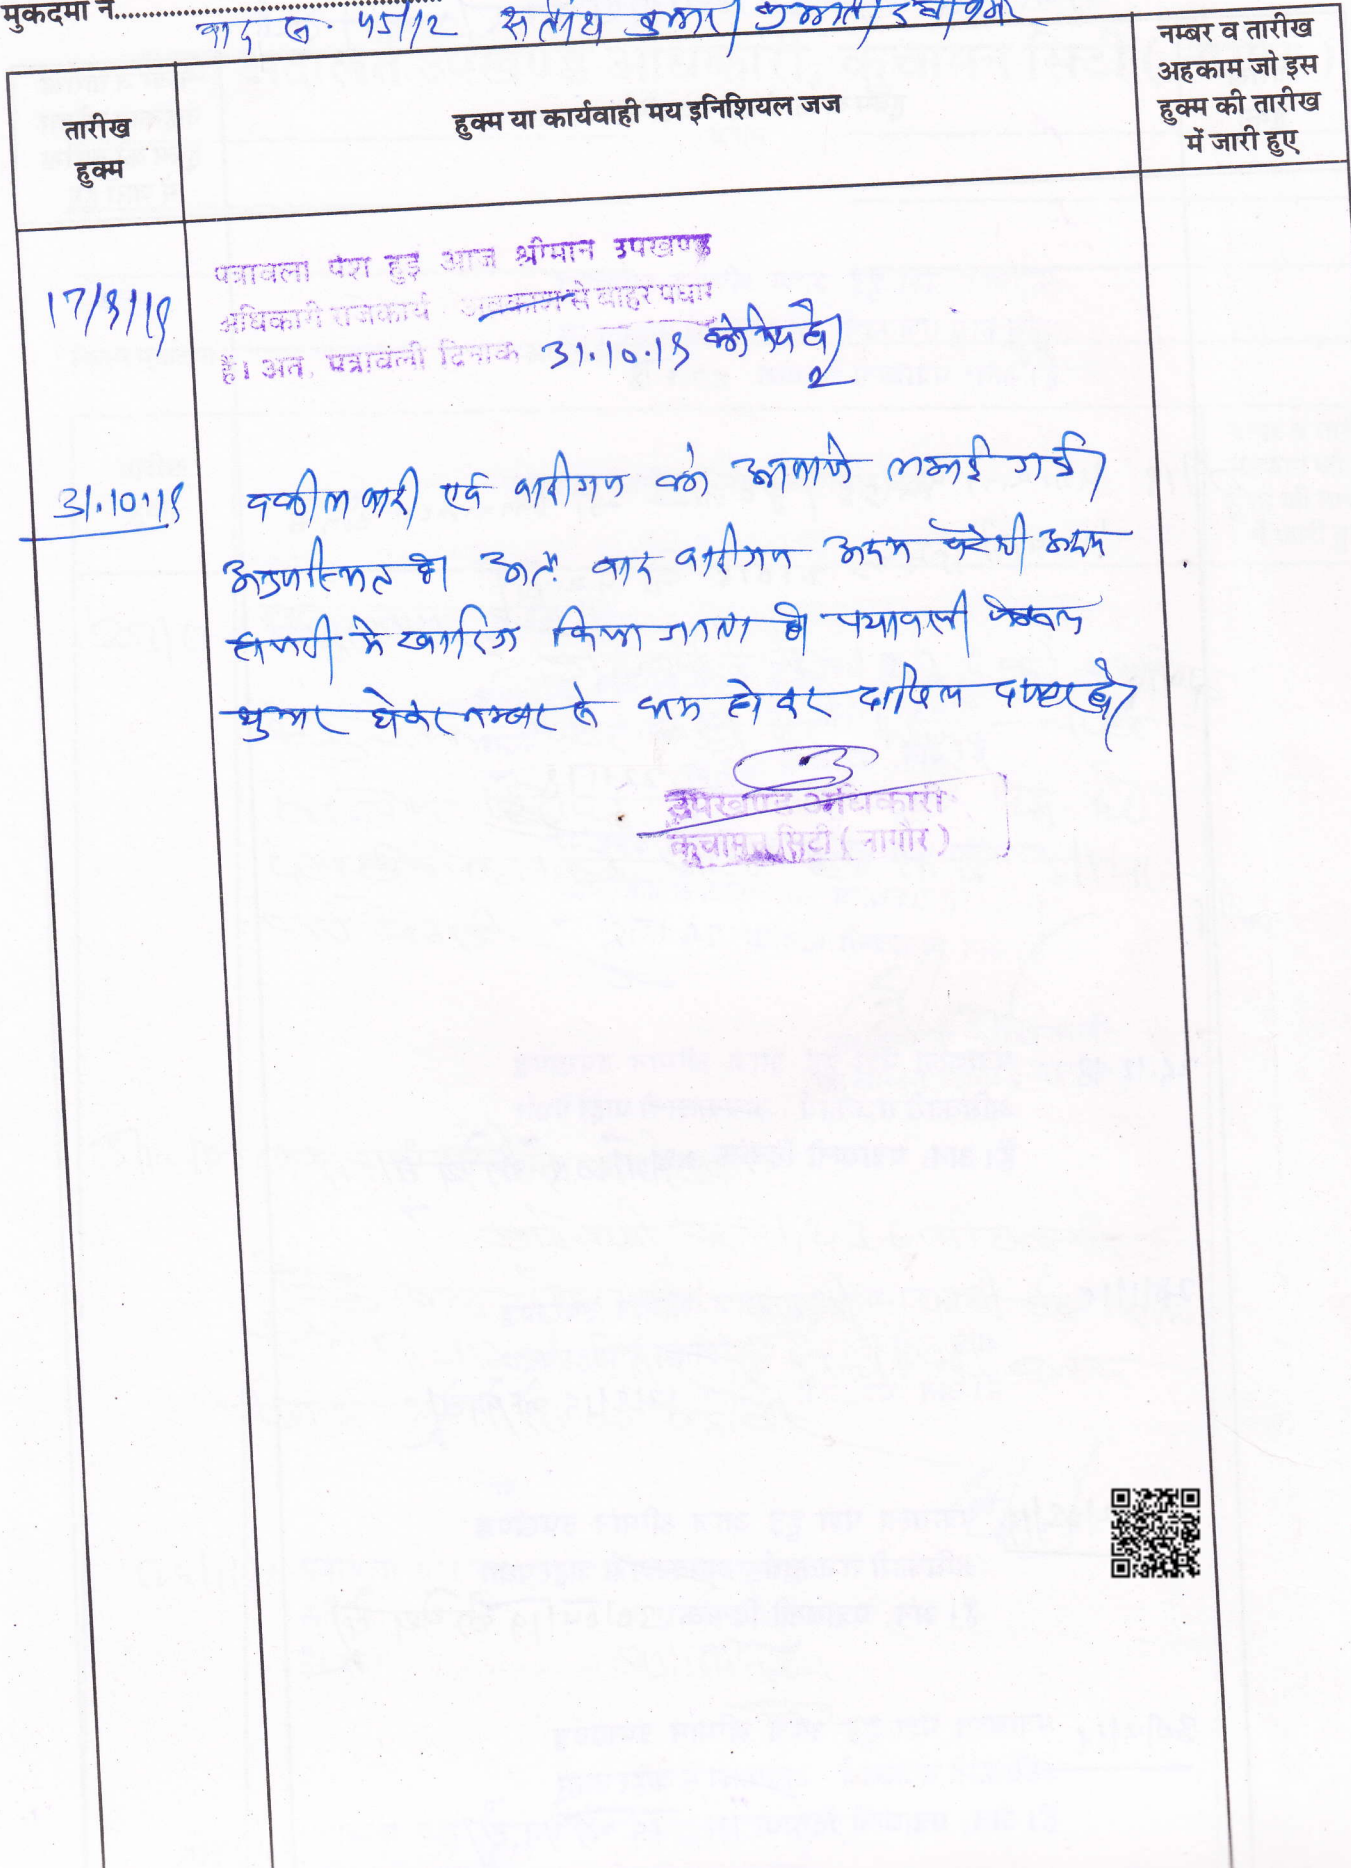 मुकदमा नं.
वाद न. 45/12
तारीख
हुक्म
हुक्म या कार्यवाही मय इनिशियल जज
नम्बर व तारीख
अहकाम जो इस
हुक्म की तारीख
में जारी हुए
पत्रावली पेश हुई आज श्रीमान उपखण्ड
अधिकारी राजकार्य अवकाश से बाहर पधारे
है। अत, पत्रावली दिनांक 31.10.19 को
31.10.19
वकील वादी एवं वादीगण को आवाजे लगाई गई।
अनुपस्थित है। अतः वाद वादीगण अदम पैरवी अदम
हाजरी में खारिज किया जाता है। पत्रावली फैसल
शुमार होकर नम्बर से कम होकर दाखिल दफ्तर हो।
उपखण्ड अधिकारी
कुचामन सिटी (नागौर)